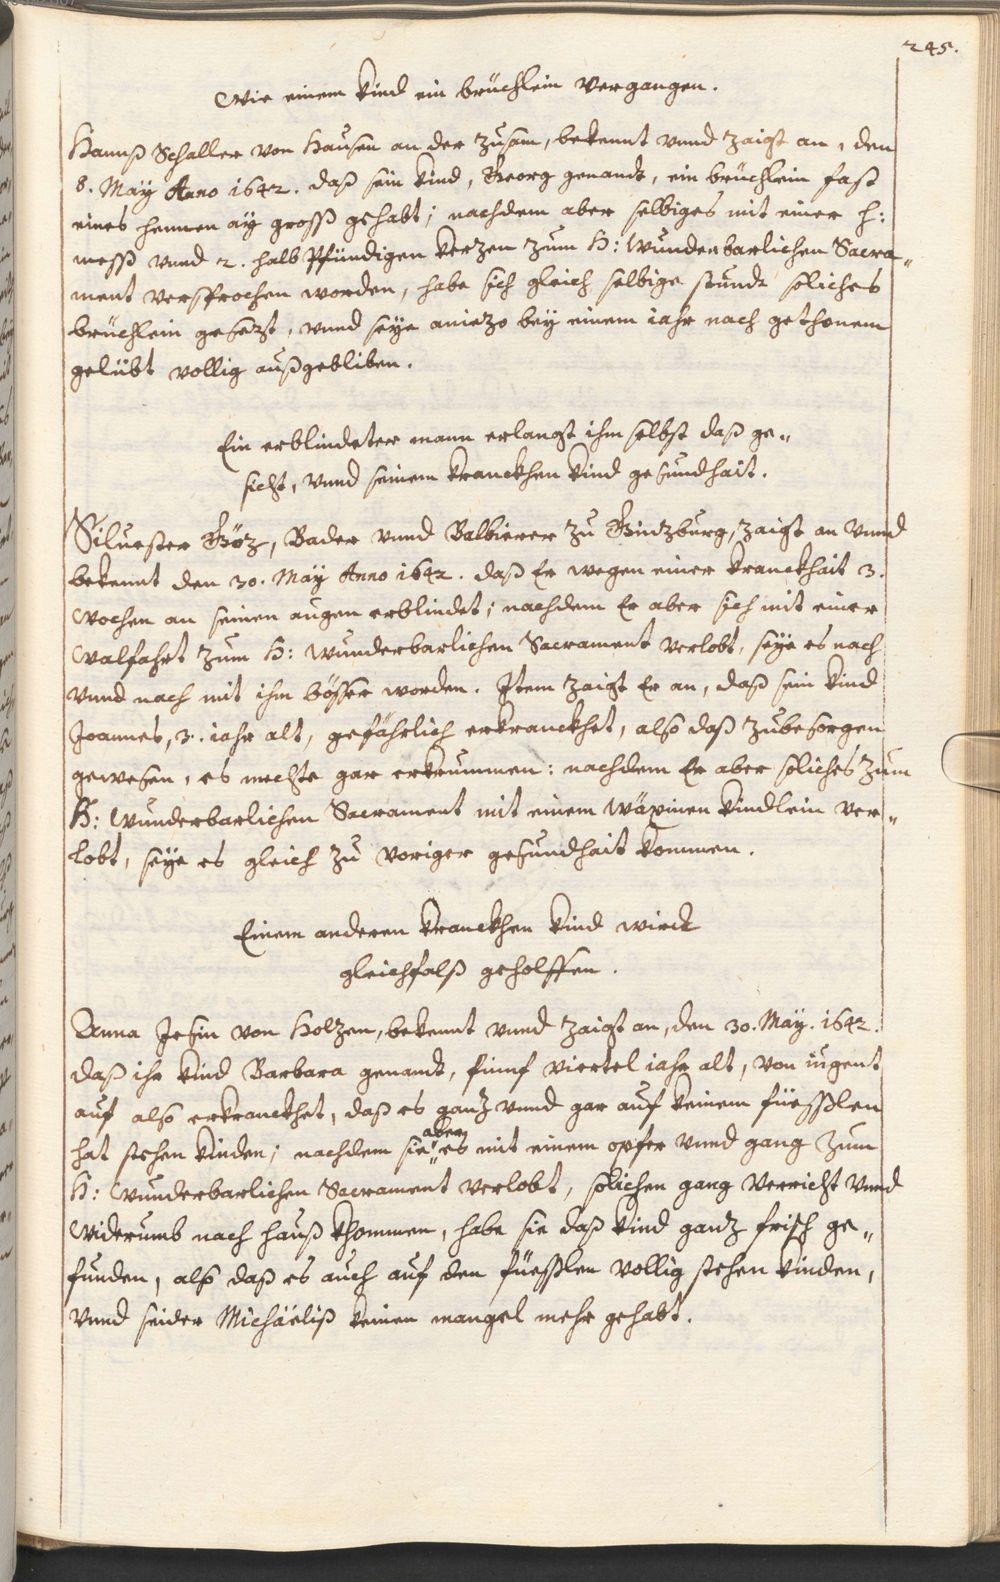 245.
Wie einem Kind ein brüchlein vergangen.
Hannß Schaller von Hausen an der Zusam, bekennt vnnd zaigt an, den
8. Maÿ Anno 1642. daß sein Kind, Georg genandt, ein brüchlein fast
eines hennen aÿ gross gehabt; nachdem aber selbiges mit einer h:
mess vnnd 2. halb Pfündigen Kerzen zum H: Wunderbarlichen Sacra„
ment versprochen worden, habe sich gleich selbige stundt soliches
brüchlein gesezt, vnnd seÿe aniezo beÿ einem iahr nach gethonem
gelübt vollig außgebliben.
Ein erblindeter mann erlangt ihm selbst daß ge„
sicht, vnnd seinem kranckhen Kind gesundhait.
Siluester Göz, Bader vnnd Balbierer zu Gintzburg, zaigt an vnnd
bekennt den 30. Maÿ Anno 1642. daß Er wegen einer kranckhait 3.
Wochen an seinen augen erblindet; nachdem Er aber sich mit einer
Walfahrt zum H: Wunderbarlichen Sacrament verlobt, seÿe es nach
vnnd nach mit ihm bösser worden. Item zaigt Er an, daß sein Kind
Joannes, 3. iahr alt, gefährlich erkranckhet, also daß zubesorgen
gewesen, es mechte gar erkrummen: nachdem Er aber soliches zum
H: Wunderbarlichen Sacrament mit einem wäxinen Kindlein ver„
lobt, seÿe es gleich zu voriger gesundhait kommen.
Einem anderen kranckhen Kind wirdt
gleichfalß geholffen.
Anna Jesin von Holtzen, bekennt vnnd zaigt an, den 30. Maÿ. 1642.
daß ihr Kind Barbara genandt, fünf viertel iahr alt, von iugent
auf also erkranckhet, daß es gantz vnnd gar auf keinem füesslen
hat stehen kinden; nachdem sie aber es mit einem opfer vnnd gang zum
H: Wunderbarlichen Sacrament verlobt, solichen gang verricht vnnd
widerumb nach hauß khommen, habe sie daß Kind gantz frisch ge„
funden, also daß es auch auf den füesslen vollig stehen kinden,
vnnd seider Michäeliß keinen mangel mehr gehabt.